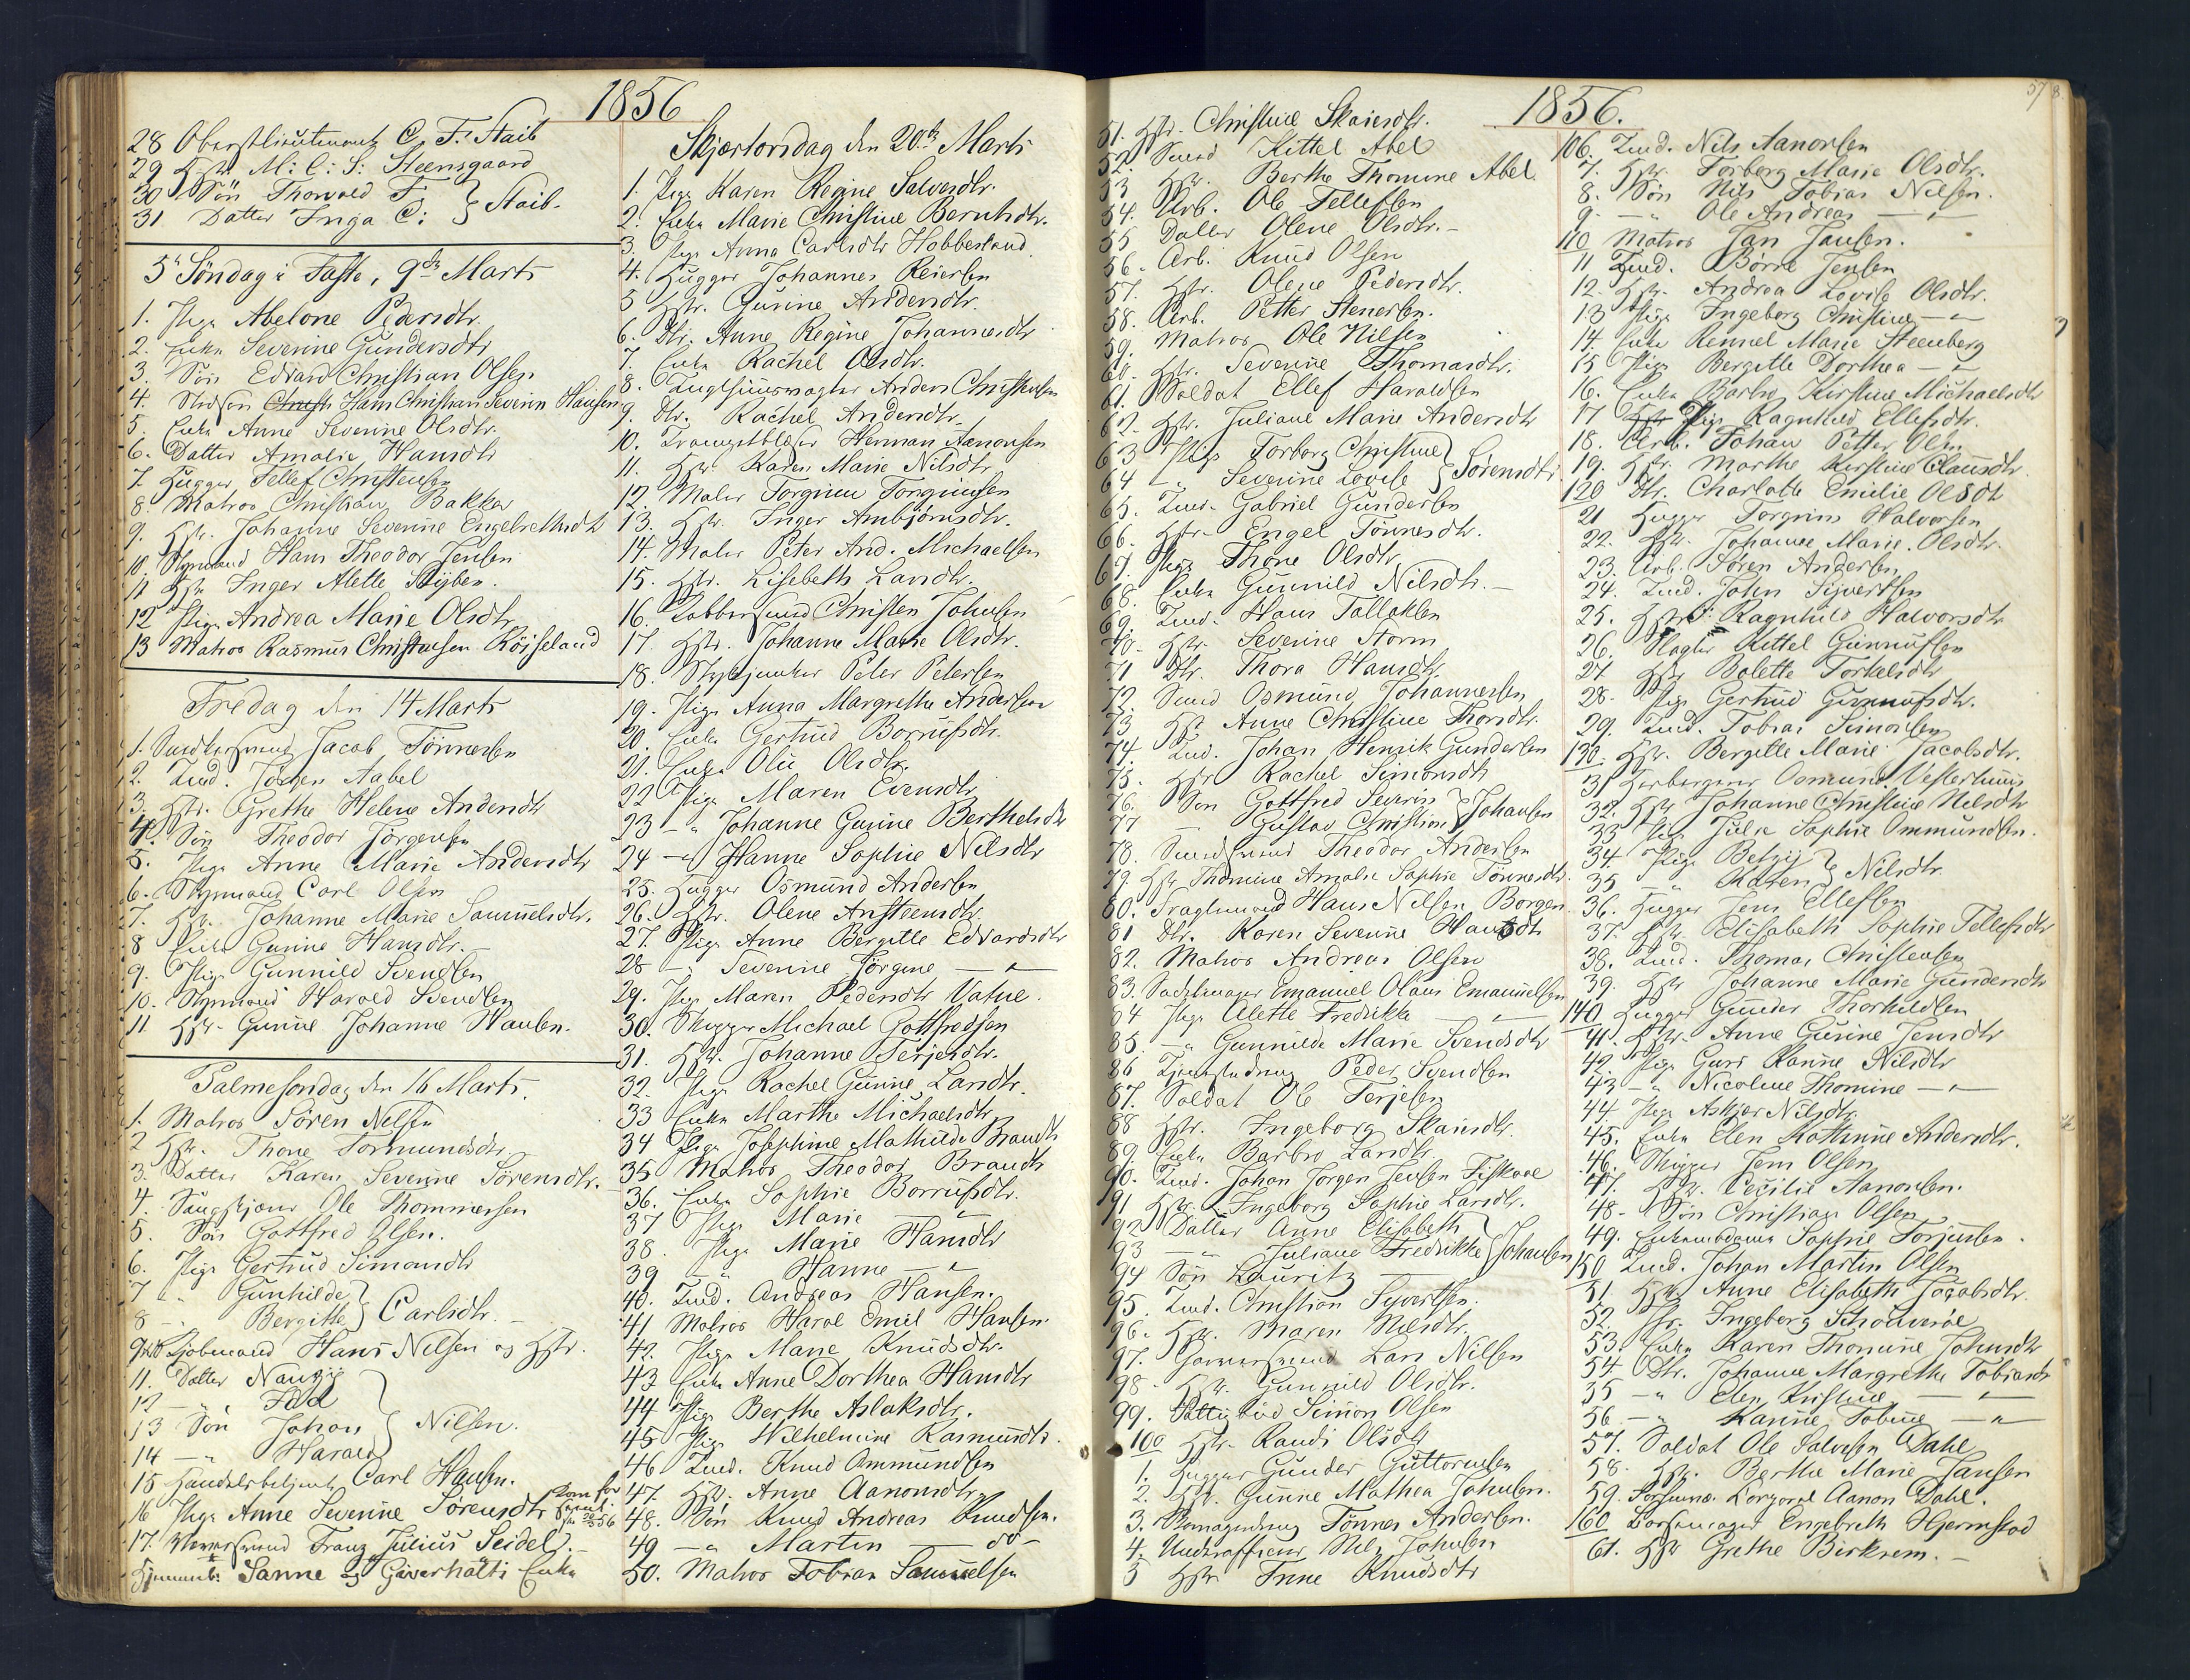 1856
28 Oberstlieutenant C. F. Staib
29 Hstr. M: C: S: Steensgaard
30 Søn Thorvald F. } Staib.
31 Datter Inga C:
5te Söndag i Faste, 9de Marts
1. Pige Abelone Pedersdtr.
2. Enke Severine Gundersdtr
3. Søn Edvard Christian Olsen
4. Stedsøn Hans Christian Severin Hansen
5. Enke Anne Severine Olsdtr.
6. Datter Amalie Hansdtr
7. Hugger Tellef Christensen
8. Matros Christian Bakke
9. Hstr. Johanne Severine Engebrethsdtr
10. Styrmand Hans Theodor Jensen
11 Hstr Inger Alette Stÿben.
12 Pige Andrea Marie Olsdtr
13 Matros Rasmus Christensen Röiseland
Fredag den 14 Marts
1. Jacob Tönnesen
2. Tmd. Jörgen Aabel
3. Hstr. Grethe Helene Andersdtr
4. Søn Theodor Jörgensen
5. Pige Anne Marie Andersdtr
6. Styrmand Carl Olsen
7. Hstr. Johanne Marie Samuelsdtr.
8 Enke Gunine Hansdtr.
9. Pige Gunnild Svendsen
10. Styrmand Harald Svendsen
11 Hstr. Gunine Johanne Hansen.
Palmesondag den 16 Marts.
1. Matros Sören Nelsen
2 Hstr. Thone Tormundsdtr.
3. Datter Karen Severine Sörensdtr.
4. Ole Thommesen
5. Søn Gottfred Olsen.
6. Pige Gertrud Simonsdtr
7 - " Gunhilde } Carlsdtr.
8 - " Bergitte
9&10 Hans Nilsen og Hstr.
11. Datter Nanzÿ
12 - "
13 Søn Johan } Nilsen.
14 - " Harald
15 Handelsbetjent Carl Hansen.
16 Pige Anne Severine Sörensdtr
17. Franz Julius Seidel.
Sanne og Enke
Skjærtorsdag den 20de Marts
1. Pige Karen Regine Salvesdtr.
2. Enke Marie Christine Berntsdtr.
3. Pige Anna Carlsdtr Hobbesland
4. Hugger Johannes Reiersen
5 Hstr. Gurine Andersdtr.
6. Dtr. Anne Regine Johannesdtr
7. Enke Rachel Olsdtr.
8. Tugthuusvagter Anders Christensen
9. Dtr. Rachel Andersdtr.
10. Trompetblæser Herman Aanonsen
11. Hstr. Karen Marie Nilsdtr
12. Maler Torgrim Torgrimsen
13. Hstr. Inger Ambjörnsdtr.
14. Maler Peter And. Michaelsen
15. Hstr. Lisebeth Larsdtr.
16. Christen Johnsen
17. Hstr. Johanne Marie Olsdtr.
18. Stykjunker Peter Petersen
19. Pige Anna Margrethe Andersen
20. Enke Gertrud Borrufsdtr.
21. Enke Olie Olsdtr.
22 Pige Maren Evensdtr
23 - " Johanne Gurine Berthelsdtr
24 - " Hanne Sophie Nelsdtr
25. Hugger Osmund Andersen
26. Hstr. Olene Ansteensdtr.
27. Pige Anne Bergitte Edvardsdtr
28 - " Severine Jörgine — " —
29. Pige Maren Pedersdtr Vatne.
30. Skipper Michael Gottfredsen
31. Hstr. Johanne Terjesdtr.
32. Pige Rachel Gunine Larsdtr.
33 Enke Marthe Michaelsdtr
34 Pige Josephine Mathilde Brandt
35 Matros Theodor Brandt
36. Enke Sophie Borrufsdtr.
37 Pige Marie — " —
38. Pige Marie Hansdtr
39 " Hanne — " —
40. Tmd. Andreas Hansen.
41 Matros Harol Emil Hansen.
42. Pige Marie Knudsdtr.
43 Enke Anne Dorthea Hansdtr
44 Pige Berthe Aslaksdtr.
45 Pige Wilhelmine Rasmusdtr.
46 Tmd. Knud Ommundsen
47. Hstr. Anne Aanonsdtr
48. Søn Knud Andreas Knudsen.
49 - " Martin — do -
50. Matros Tobias Samuelsen
1856.
51. Hstr. Christine
52. Smed Kittel Abel
53 Hstr. Berthe Thomine Abel.
54. Arb. Ole Tellefsen
55 Datter Olene Olsdtr. -
56. Arb. Knud Olsen
57. Hstr. Olene Pedersdtr.
58. Arb. Petter Stenersen.
59. Matros Ole Nilsen
60. Hstr. Severine Thomasdtr.
61. Soldat Ellef Haraldsen
62. Hstr. Juliane Marie Andersdtr
63 Pige Torborg Christine } Sörensdtr.
64 - " Severine Lovise
65. Tmd. Gabriel Gundersen
66. Hstr. Engel Tönnesdtr.
67. Pige Thone Olsdtr
68. Enke Gunnild Nilsdtr. -
69. Tmd. Hans Tallaksen
70. Hstr. Severine Storm
71 Dtr. Thora Hansdtr.
72. Smed Osmund Johannesen
73 Hstr Anne Christine Thorsdtr.
74. Tmd. Johan Henrik Gundersen
75. Hstr Rachel Simonsdtr
76. Søn Gottfred Severin } Johansen
77 — Gustav Christian
78. Theodor Andersen
79. Hstr Thomine Amalie Sophie Tönnesdtr.
80. Hans Nilsen Borgen
81 Dtr. Karen Severine Hansdtr
82. Matros Andreas Olsen
83. Sadelmager Emanuel Olaus Emanuelsen
84 Pige Alette Fredrikke — " —
85. - " Gunnilde Marie Svendsdtr
86 Peder Svendsen
87. Soldat Ole Terjesen
88 Hstr. Ingeborg
89 Enke Barbro Larsdtr.
90. Tmd. Johan Jörgen Jensen Fiskaae
91 Hstr. Ingeborg Sophie Larsdtr.
92 Datter Anne Elisabeth } Johansen
93 — " Juliane Fredrikke
94 Søn Lauritz —
95. Tmd. Christian Syvertsen.
96. Hstr. Maren Nilsdtr.
97. Lars Nilsen
98. Hstr. Gunnild Olsdtr.
99. Simon Olsen
100 Hstr. Randi Olsdtr
1. Hugger Gunder Guttormsen
2. Hstr. Gunine Mathea Johnsen.
3. Tönnes Andersen.
4. Underofficeer Nils Johnsen
5 Hstr Knudsdtr
106. Tmd. Nils Aanonsen
7. Hstr. Torborg Marie Olsdtr.
8. Søn Nils Tobias Nilsen.
9. — " Ole Andreas — " —
110 Matros Jan Jansen.
11 Tmd. Börre Jensen
12. Hstr. Andrea Lovise Olsdtr.
13 Pige Ingeborg Christine — " —
14. Enke Rennel Marie Steenberg
15 Pige Bergitte Dorthea — " —
16. Enke Barbro Kirstine Michaelsdtr
17 Pige Ragnhild Ellefsdtr.
18. Arb. Johan Petter Olsen
19. Hstr. Marthe Kirstine Clausdtr.
120 Dtr. Charlotte Emilie Olsdtr
21 Hugger Torgrim Halvorsen
22. Hstr. Johanne Marie Olsdtr.
23. Arb. Sören Andersen
24. Tmd. John Sÿvertsen
25. Hstr. Ragnhild Halvorsdtr
26. Slagter Kittel Gunnufsen
27 Hstr Bolette Torkelsdtr
28. Pige Gertrud Gunnufsdtr.
29. Tmd. Tobias Simonsen
130. Hstr. Bergitte Marie Jacobsdtr.
31 Osmund Vesterhuus
32. Hstr Johanne Christine Nilsdtr
33 Pige Julie Sophie Ommundsen.
34 Pige Betzÿ } Nilsdtr.
35 - " Maren
36. Hugger Jens Ellefsen
37. Hstr. Elisabeth Sophie Tellefsdtr
38. Tmd. Thomas Christensen
39. Hstr Johanne Marie Gundersdtr
140 Hugger Gunder Thorkildsen
41. Hstr. Anne Gurine Jensdtr
42. Pige Guro Karine Nilsdtr
43 - " Nicoline Thomine — " —
44 Pige Askjer Nilsdtr.
45. Enke Elen Kathrine Andersdtr.
46. Skipper Jens Olsen
47. Hstr. Cecilie Aanonsen.
48. Søn Christian Olsen
49. Enkemadame Sophie Torjussen.
150 Tmd. Johan Martin Olsen
51. Hstr Anne Elisabeth Jacobsdtr.
52. Jfr. Ingeborg Schouverøe
53. Enke Karen Thomine Johnsdtr
54 Dtr. Johanne Margrethe Tobiasdtr
55 — " Elen Kirstine — " —
56 — " Karine Tobine — " —
57. Soldat Ole Salvesen Dahl
58. Hstr. Berthe Marie Jansen
59. Corporal Aanon Dahl.
160 Engebreth Hjermstad
61. Hstr Grethe Birkrem. -